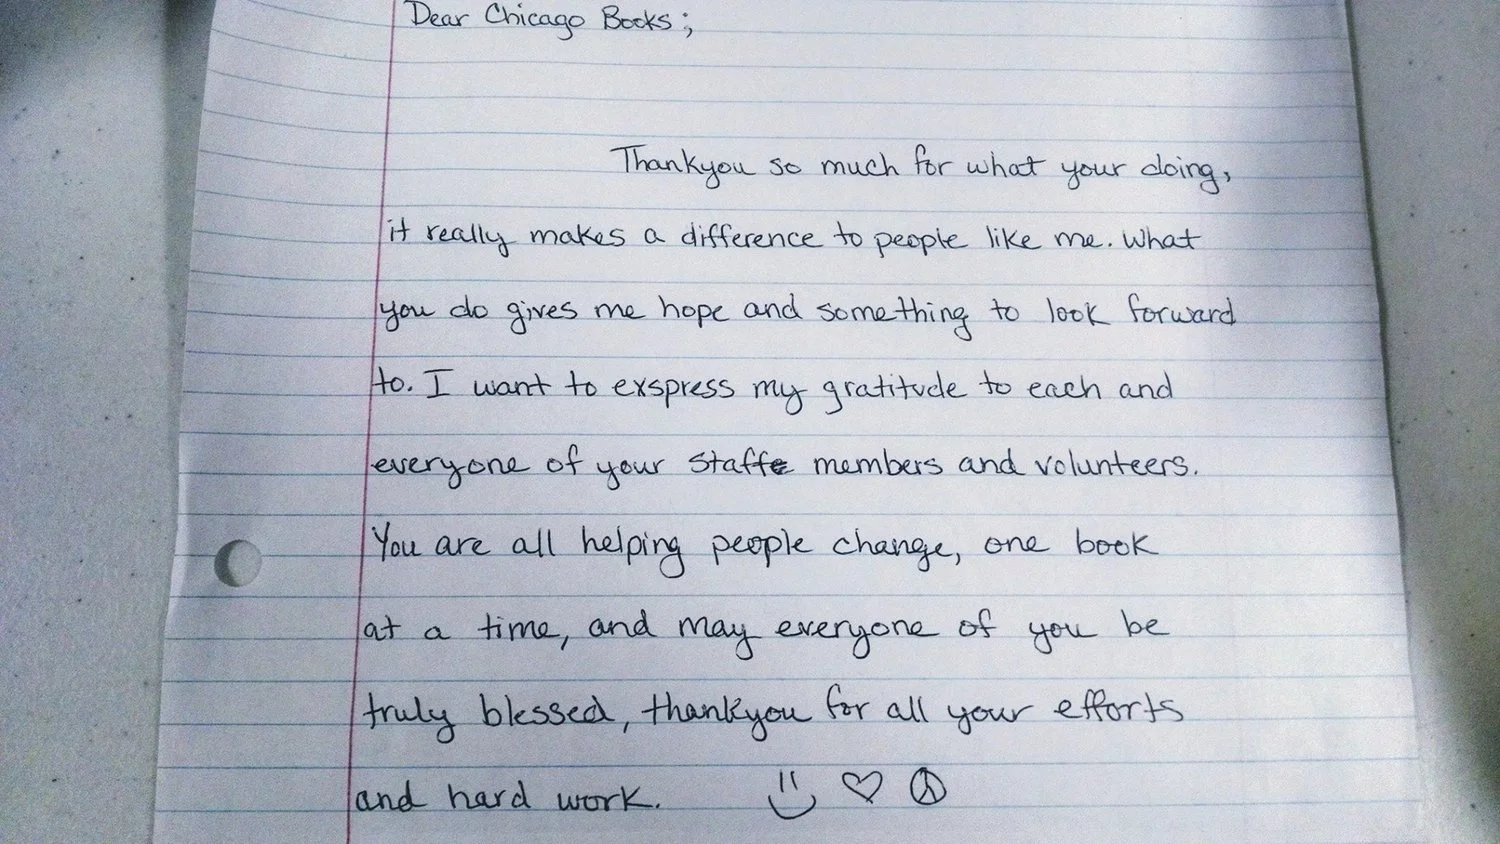 Dear Chicago Books;
Thankyou so much for what your doing,
it really makes a difference to people like me. What
you do gives me hope and something to look forward
to. I want to exspress my gratitude to each and
everyone of your staffe members and volunteers.
You are all helping people change, one book
at a time, and may everyone of you be
truly blessed, thankyou for all your efforts
and hard work.